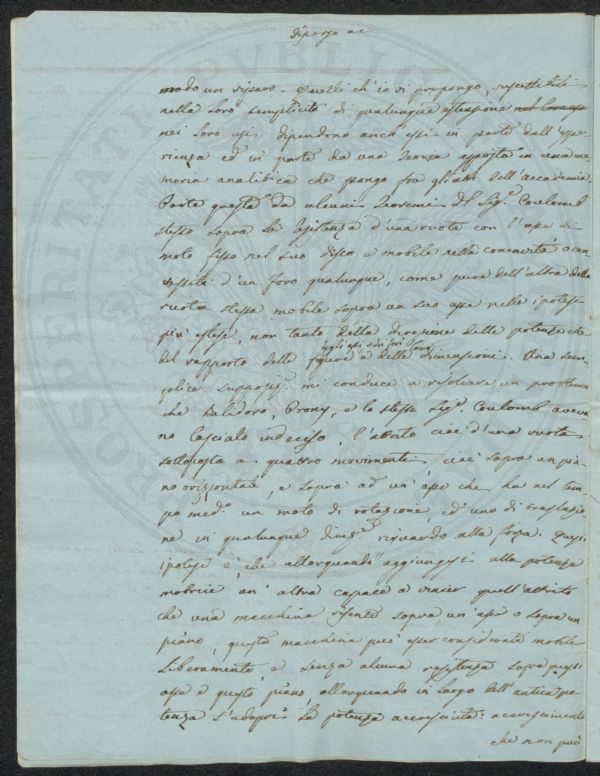 modo un riparo. Quelli ch'io vi propongo, suscettibili
nella loro semplicità di qualunque estensione
nei loro usi dipendono anch'essi in parte dall'espe-
rienza ed in parte da una Teoria esposta in una me-
moria analitica che pongo fra gli atti dell'accademia.
Parte questa da alcuni Teoremi del Sig.r Coulomb
stesso sopra la resistenza d'una ruota con l'asse di
moto fisso nel suo disco e mobile nella concavità o con-
vessità d'un foro qualunque, come pure dell'altra della
ruota stessa mobile sopra un suo asse nelle ipotesi
più estese, non tanto della direzione delle potenze che
del rapporto delle figure e delle dimensioni. Una sem-
plice supposiz.e mi conduce a risolvere un problema
che Belidoro, Prony, e lo stesso Sig.r Coulomb aveva-
no lasciato indeciso, l'attrito cioè d'una ruota
sottoposta a quattro movimenti, cioè sopra un pia-
no orizzontale, e sopra ad un'asse che ha nel tem-
po med.o un moto di rotazione, ed uno di traslazio-
ne in qualunque direz.e riguardo alla forza. Quest'
ipotesi è, che allorquando aggiungasi alla potenza
motrice un'altra capace a vincer quell'attrito
che una macchina risente sopra un'asse o sopra un
piano, questa macchina può esser considerata mobile
liberamente, e senza alcuna resistenza sopra quest'
asse e questo piano, allorquando in luogo dell'antica po-
tenza s'adopri la potenza accresciuta: accrescimento
che non può